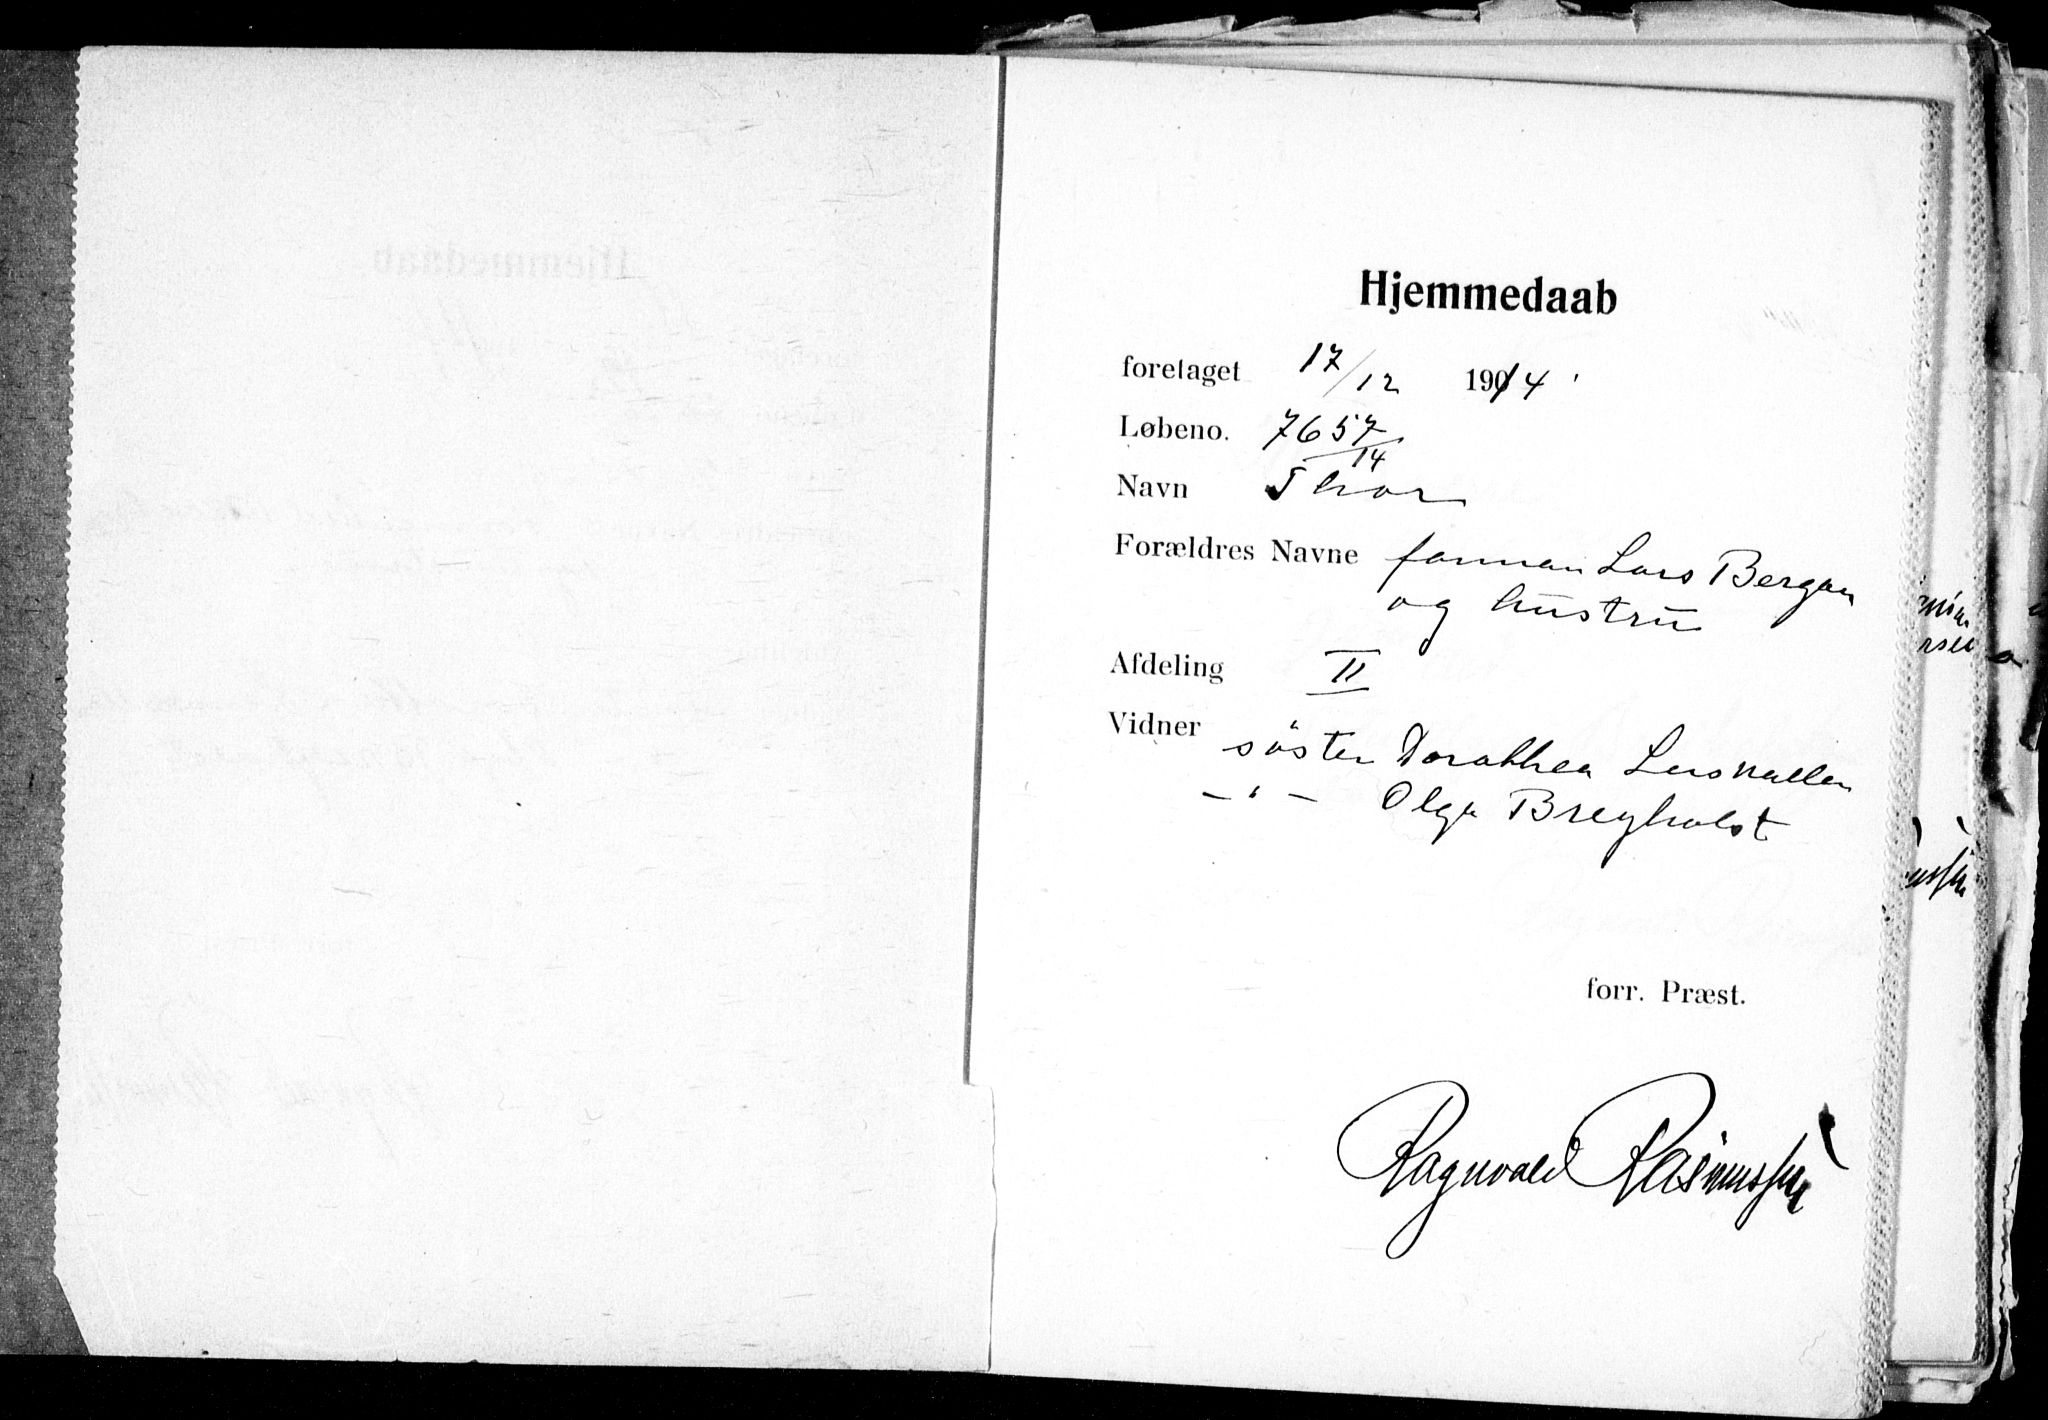 Hjemmedaab
foretaget 17/12 1914
Løbeno. 7657/14
Navn Thor
Forældres Navne forman Lars Bergan
og hustru
Afdeling II
Vidner söster Dorothea
-"- Olga Bregholst
forr. Præst.
Ragnvald Rasmussen